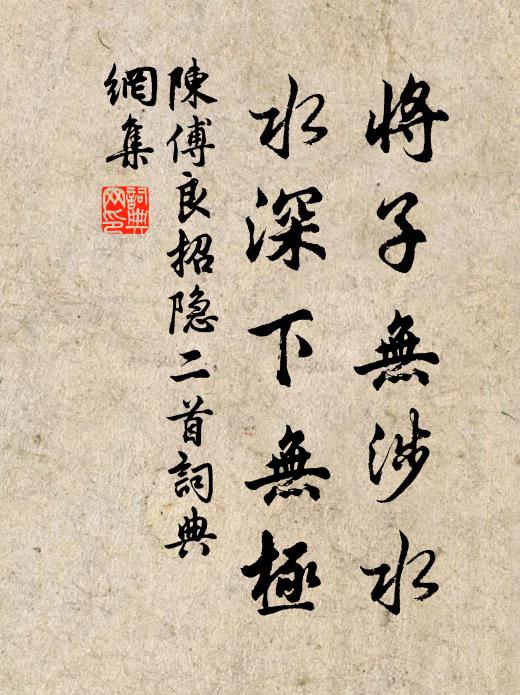 將子無涉水
水深下無極
陳傅良招隐二首詞典
網集
詞典
网印